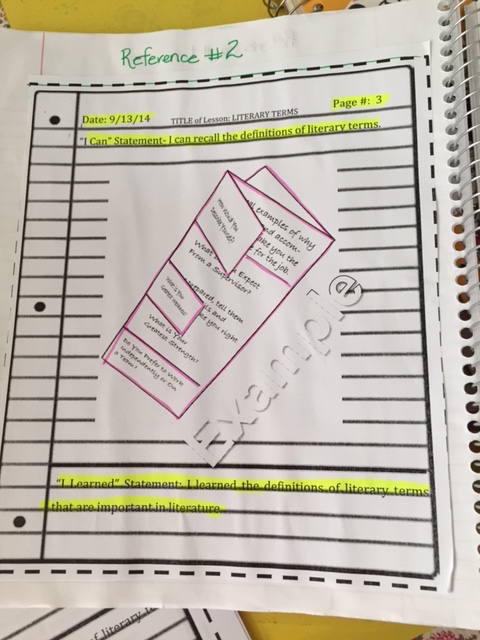 Reference #2
Page #: 3
Date: 9/13/14 TITLE of Lesson: LITERARY TERMS
"I Can" Statement- I can recall the definitions of literary terms.
examples of why
and accom-
you the
for the job.
What Expect
From a Supervisor?
tell them
and
you right
What is Your
Greatest Strength?
Do You Prefer to Work
Independently or On
a Team?
Example
"I Learned" Statement: I learned the definitions of literary terms
that are important in literature.
of literary